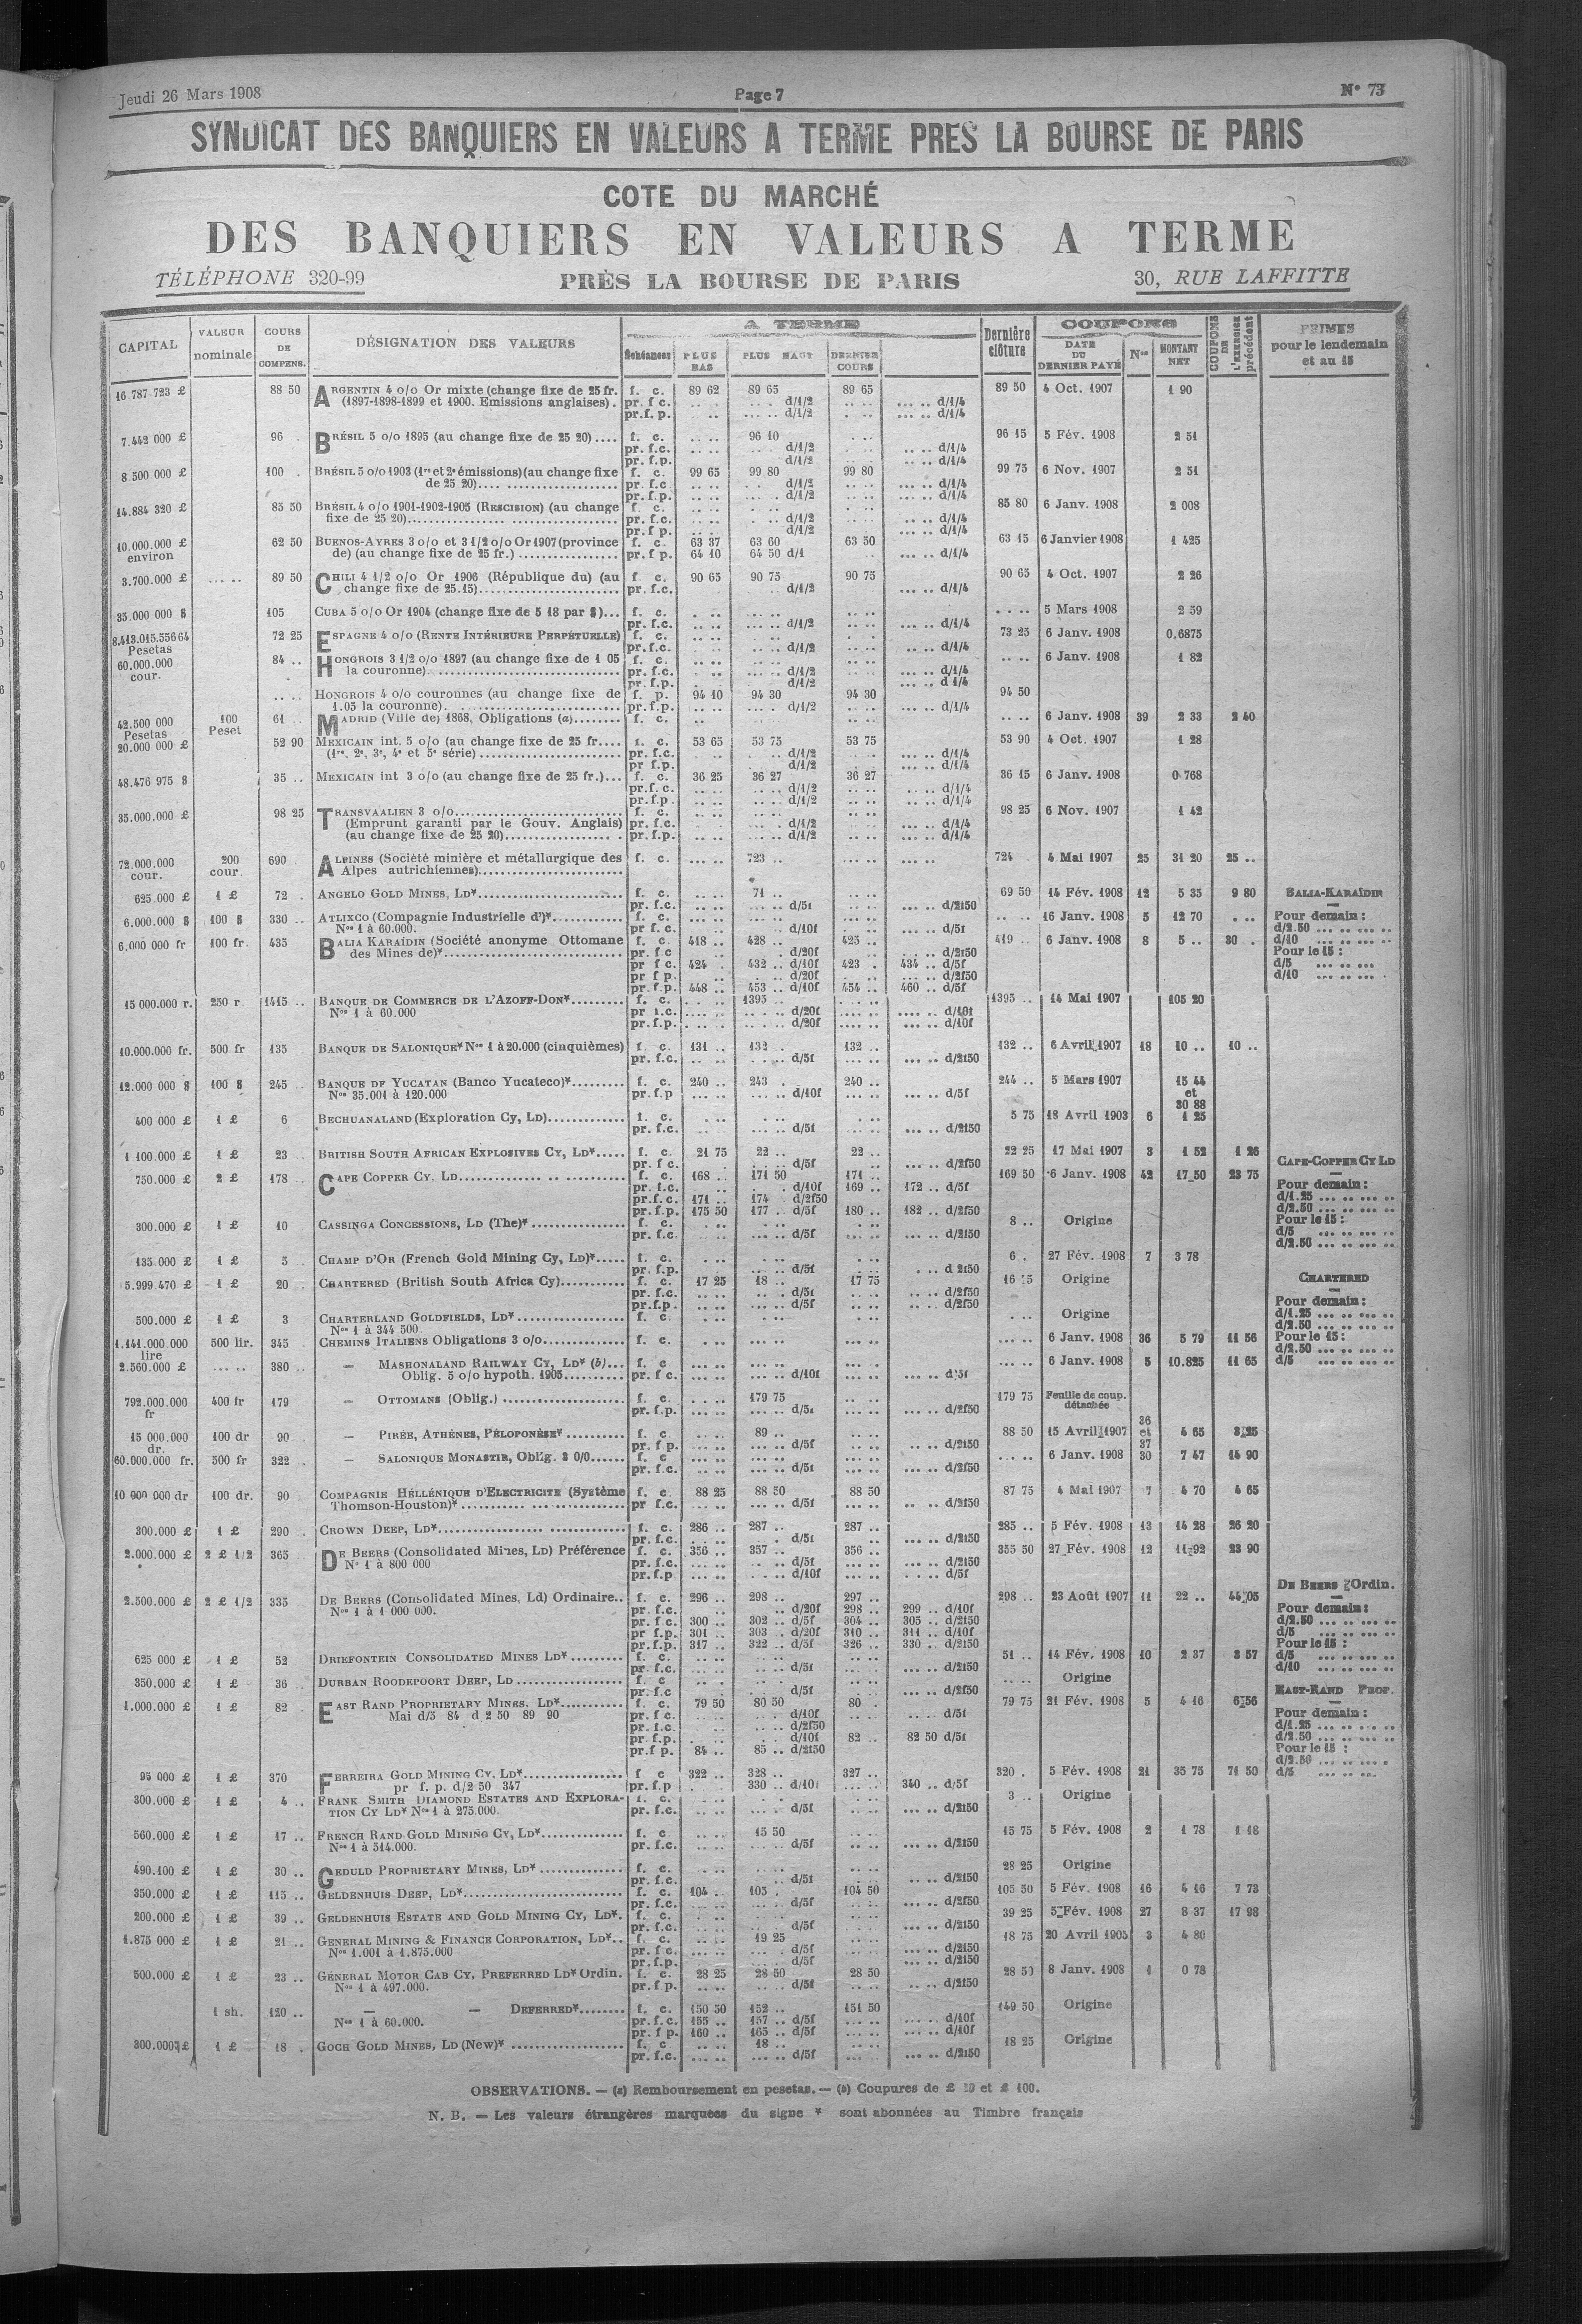 Jeudi 26 Mars 1908 Page 7 N° 73
SYNDICAT DES BANQUIERS EN VALEURS A TERME PRES LA BOURSE DE PARIS
COTE DU MARCHÉ
DES BANQUIERS EN VALEURS A TERME
TÉLÉPHONE 320-99 PRÈS LA BOURSE DE PARIS 30, RUE LAFFITTE
CAPITAL VALEUR nominale COURS DE COMPENS. DÉSIGNATION DES VALEURS A TERME Échéances PLUS BAS PLUS HAUT DERNIER COURS Dernière clôture COUPONS DATE DU DERNIER PAYÉ Nos MONTANT NET COUPONS DE L'EXERCICE précédent PRIMES pour le lendemain et au 15
16 787 723 £ 88 50 ARGENTIN 4 o/o Or mixte (change fixe de 25 fr. f. c. 89 62 89 65 89 65 89 50 4 Oct. 1907 1 90
(1897-1898-1899 et 1900. Emissions anglaises). pr. f c. d/1/2 d/1/4
pr.f. p. d/1/2 d/1/4
7.442 000 £ 96 BRÉSIL 5 o/o 1895 (au change fixe de 25 20).... f. c. 96 10 96 15 5 Fév. 1908 2 51
pr. f.c. d/1/2 d/1/4
pr.f.p. d/1/2 d/1/4
8.500 000 £ 100 BRÉSIL 5 o/o 1903 (1re et 2e émissions) (au change fixe f. c. 99 65 99 80 99 80 99 75 6 Nov. 1907 2 51
de 25 20) pr. f.c d/1/2 d/1/4
pr.f.p. d/1/2 d/1/4
14.884 320 £ 85 50 BRÉSIL 4 o/o 1901-1902-1905 (RESCISION) (au change f. c. 85 80 6 Janv. 1908 2 008
fixe de 25 20) pr. f.c. d/1/2 d/1/4
pr.f p. d/1/2 d/1/4
10.000.000 £ environ 62 50 BUENOS-AYRES 3 o/o et 3 1/2 o/o Or 1907 (province f. c. 63 37 63 60 63 50 63 15 6 Janvier 1908 1 425
de) (au change fixe de 25 fr.) pr. f p. 64 10 64 50 d/1 d/1/4
3.700.000 £ 89 50 CHILI 4 1/2 o/o Or 1906 (République du) (au f. c. 90 65 90 75 90 75 90 65 4 Oct. 1907 2 26
change fixe de 25.15) pr. f.c. d/1/2 d/1/4
35.000 000 $ 105 CUBA 5 o/o Or 1904 (change fixe de 5 18 par $)... f. c. 5 Mars 1908 2 59
pr. f.c. d/1/2 d/1/4
8.413.015.556 64 Pesetas 72 25 ESPAGNE 4 o/o (RENTE INTÉRIEURE PERPÉTUELLE) f. c. 73 25 6 Janv. 1908 0,6875
pr. f.c. d/1/2 d/1/4
60.000.000 cour. 84 .. HONGROIS 3 1/2 o/o 1897 (au change fixe de 1 05 f. c. 6 Janv. 1908 1 82
la couronne) pr. f.c. d/1/2 d/1/4
pr. f.p. d/1/2 d 1/4
HONGROIS 4 o/o couronnes (au change fixe de f. p. 94 10 94 30 94 30 94 50
1.05 la couronne). pr.f.p. d/1/2 d/1/4
42.500 000 Pesetas 100 Peset 61 MADRID (Ville de) 1868, Obligations (a) f. c. 6 Janv. 1908 39 2 33 2 40
20.000 000 £ 52 90 MEXICAIN int. 5 o/o (au change fixe de 25 fr.... f. c. 53 65 53 75 53 75 53 90 4 Oct. 1907 1 28
(1re, 2e, 3e, 4e et 5e série) pr. f.c. d/1/2 d/1/4
pr f.p. d/1/2 d/1/4
48.476 975 $ 35 .. MEXICAIN int 3 o/o (au change fixe de 25 fr.)... f. c. 36 25 36 27 36 27 36 15 6 Janv. 1908 0 768
pr.f. c. d/1/2 d/1/4
pr.f.p. d/1/2 d/1/4
35.000.000 £ 98 25 TRANSVAALIEN 3 o/o f. c. 98 25 6 Nov. 1907 1 42
(Emprunt garanti par le Gouv. Anglais) pr. f.c. d/1/2 d/1/4
(au change fixe de 25 20) pr. f.p. d/1/2 d/1/4
72.000.000 cour. 200 cour. 690 ALPINES (Société minière et métallurgique des f. c. 723 .. 724 4 Mai 1907 25 31 20 25 ..
Alpes autrichiennes)
625.000 £ 1 £ 72 ANGELO GOLD MINES, LD* f. c. 71 .. 69 50 14 Fév. 1908 12 5 35 9 80 BALIA-KARAÏDIN
pr. f.c. d/5f d/2f50
6.000.000 $ 100 $ 330 .. ATLIXCO (Compagnie Industrielle d')* f. c. 16 Janv. 1908 5 12 70 Pour demain :
Nos 1 à 60.000. pr f.c. d/10f d/5f d/2.50
6,000 000 fr 100 fr. 435 BALIA KARAÏDIN (Société anonyme Ottomane f. c. 418 .. 428 .. 425 .. 419 .. 6 Janv. 1908 8 5 .. 30 . d/10
des Mines de)* pr. f.c d/20f d/2f50 Pour le 15 :
pr f c. 424 . 432 .. d/10f 423 . 434 .. d/5f d/5
pr f p. d/20f d/2f50 d/10
pr.f.p. 448 .. 453 .. d/10f 454 .. 460 .. d/5f
15 000.000 r. 250 r 1415 .. BANQUE DE COMMERCE DE L'AZOFF-DON* f. c. 1395 .. 1395 .. 14 Mai 1907 105 20
Nos 1 à 60.000 pr f.c. d/20f d/10f
pr.f.p. d/20f d/10f
10.000.000 fr. 500 fr 135 BANQUE DE SALONIQUE* Nos 1 à 20.000 (cinquièmes) f. c. 131 .. 132 . 132 .. 132 .. 6 Avril 1907 18 10 .. 10 ..
pr. f.c. d/5f d/2f50
12.000 000 $ 100 $ 245 BANQUE DE YUCATAN (Banco Yucateco)* f. c. 240 .. 243 . 240 .. 244 .. 5 Mars 1907 15 44
Nos 35.001 à 120.000 pr. f.p d/10f d/5f et
30 88
400 000 £ 1 £ 6 BECHUANALAND (Exploration Cy, LD) f. c. 5 75 18 Avril 1903 6 1 25
pr. f.c. d/5f d/2f50
1 100.000 £ 1 £ 23 BRITISH SOUTH AFRICAN EXPLOSIVES CY, LD* f. c. 21 75 22 .. 22 .. 22 25 17 Mai 1907 3 1 52 1 26
pr. f c. d/5f d/2f50 CAPE-COPPER CY LD
750.000 £ 2 £ 178 CAPE COPPER CY. LD f. c. 168 .. 171 50 171 .. 169 50 6 Janv. 1908 42 17,50 23 75 Pour demain :
pr. f.c. d/10f 169 .. 172 .. d/5f d/1.25
pr.f. c. 171 .. 174 d/2f50 d/2.50
pr.f.p. 175 50 177 .. d/5f 180 .. 182 .. d/2f50 Pour le 15 :
300.000 £ 1 £ 10 CASSINGA CONCESSIONS, LD (The)* f. c. 8 .. Origine d/5
pr. f.c. d/5f d/2f50 d/2.50
135.000 £ 1 £ 5 CHAMP D'OR (French Gold Mining Cy, LD)* f. c. 6 . 27 Fév. 1908 7 3 78
pr. f.p. d/5f d 2f50
5.999.470 £ 1 £ 20 CHARTERED (British South Africa Cy) f. c. 17 25 18 .. 17 75 Origine CHARTERED
pr. f.c. d/5f d/2f50 Pour demain :
pr.f.p. d/5f d/2f50 d/1.25
500.000 £ 1 £ 3 CHARTERLAND GOLDFIELDS, LD* f. c. Origine d/2.50
Nos 1 à 344 500. Pour le 15 :
1.141.000.000 lire 500 lir. 345 CHEMINS ITALIENS Obligations 3 o/o f. c. 6 Janv. 1908 36 5 79 11 56 d/2.50
2.560.000 £ 380 — MASHONALAND RAILWAY CY, LD* (b) f. c 6 Janv. 1908 5 10.825 11 65 d/5
Oblig. 5 o/o hypoth. 1905 pr. f c. d/10f d/5f
792.000.000 fr 400 fr 479 — OTTOMANS (Oblig.) f. c. 179 75 179 75 Feuille de coup. détachée
pr. f.p. d/5f d/2f50
15 000.000 dr. 100 dr 90 — PIRÉE, ATHÈNES, PÉLOPONÈSE* f. c 89 .. 88 50 15 Avril 1907 36 et 37 4 65 3 25
pr. f p. d/5f d/2f50
60.000.000 fr. 500 fr 322 — SALONIQUE MONASTIR, Oblig. 3 0/0 f. c 6 Janv. 1908 30 7 47 14 90
pr. f.c. d/5f d/2f50
10 000 000 dr 100 dr. 90 COMPAGNIE HÉLLÉNIQUE D'ELECTRICITE (Système f. c. 88 25 88 50 88 50 87 75 4 Mai 1907 7 4 70 4 65
Thomson-Houston)* pr f.c. d/5f d/2f50
300.000 £ 1 £ 290 CROWN DEEP, LD* f. c. 286 .. 287 .. 287 .. 285 .. 5 Fév. 1908 13 14 28 26 20
pr. f.c. d/5f d/2f50
2.000.000 £ 2 £ 1/2 365 DE BEERS (Consolidated Mines, LD) Préférence f. c. 356 .. 357 .. 356 .. 355 50 27 Fév. 1908 12 11 92 23 90
N° 1 à 800 000 pr. f.c. d/5f d/2f50
pr.f.p d/10f d/5f
2.500.000 £ 2 £ 1/2 335 DE BEERS (Consolidated Mines, Ld) Ordinaire.. f. c. 296 .. 298 .. 297 .. 298 .. 23 Août 1907 11 22 .. 44 05 DE BEERS Ordin.
Nos 1 à 1 000 000. pr. f.c. d/20f 298 .. 299 .. d/10f Pour demain :
pr. f c. 300 .. 302 .. d/5f 304 .. 305 .. d/2f50 d/2.50
pr f.p. 301 .. 303 .. d/20f 310 .. 311 .. d/10f d/5
pr.f.p. 317 .. 322 .. d/5f 326 .. 330 .. d/2f50 Pour le 15 :
625 000 £ 1 £ 52 DRIEFONTEIN CONSOLIDATED MINES LD* f. c. 51 .. 14 Fév. 1908 10 2 37 3 57 d/5
pr. f.c. d/5f d/2f50 d/10
350.000 £ 1 £ 36 DURBAN ROODEPOORT DEEP, LD f. c Origine
pr. f.c d/5f d/2f50 EAST-RAND PROP.
1.000.000 £ 1 £ 82 EAST RAND PROPRIETARY MINES, LD* f. c. 79 50 80 50 80 . 79 75 21 Fév. 1908 5 4 16 6 56 Pour demain :
Mai d/5 84 d 2 50 89 90 pr. f c. d/10f d/5f d/1.25
pr. f.c. d/2f50 d/2.50
pr. f.p. d/10f 82 .. 82 50 d/5f Pour le 15 :
pr.f p. 84 .. 85 .. d/2f50 d/2.50
95 000 £ 1 £ 370 FERREIRA GOLD MINING CY, LD* f c 322 .. 328 .. 327 .. 320 . 5 Fév. 1908 21 35 75 71 50 d/5
pr f. p. d/2 50 347 pr. f.p 330 .. d/10f 340 .. d/5f
300.000 £ 1 £ 4 .. FRANK SMITH DIAMOND ESTATES AND EXPLORA- f. c. 3 .. Origine
TION CY LD* Nos 1 à 275.000. pr. f.c. d/5f d/2f50
560.000 £ 1 £ 17 .. FRENCH RAND GOLD MINING CY, LD* f. c 15 50 15 75 5 Fév. 1908 2 1 78 1 18
Nos 1 à 514.000. pr. f.c. d/5f d/2f50
490.100 £ 1 £ 30 .. GEDULD PROPRIETARY MINES, LD* f. c. 28 25 Origine
pr. f.c. d/5f d/2f50
350.000 £ 1 £ 115 .. GELDENHUIS DEEP, LD* f. c. 104 .. 105 . 104 50 105 50 5 Fév. 1908 16 4 16 7 73
pr. f.c. d/5f d/2f50
200.000 £ 1 £ 39 .. GELDENHUIS ESTATE AND GOLD MINING CY, LD*. f. c. 39 25 5 Fév. 1908 27 8 37 17 98
pr. f.c. d/5f d/2f50
1.875 000 £ 1 £ 21 .. GENERAL MINING & FINANCE CORPORATION, LD*.. f. c. 19 25 18 75 20 Avril 1905 3 4 80
Nos 1.001 à 1.875.000 pr. f c. d/5f d/2f50
pr.f.p. d/5f d/2f50
500.000 £ 1 £ 23 .. GÉNÉRAL MOTOR CAB CY, PREFERRED LD* Ordin. f. c. 28 25 28 50 28 50 28 50 8 Janv. 1908 1 0 78
Nos 1 à 497.000. pr. f p. d/5f d/2f50
1 sh. 120 .. — — DEFERRED* f. c. 150 50 152 .. 151 50 149 50 Origine
Nos 1 à 60.000. pr. f. c. 155 .. 157 .. d/5f d/10f
pr. f p. 160 .. 165 .. d/5f d/10f
300.000 £ 1 £ 18 . GOCH GOLD MINES, LD (New)* f. c 18 .. 18 25 Origine
pr. f.c. d/5f d/2f50
OBSERVATIONS. — (a) Remboursement en pesetas. — (b) Coupures de £ 20 et £ 100.
N. B. — Les valeurs étrangères marquées du signe * sont abonnées au Timbre français